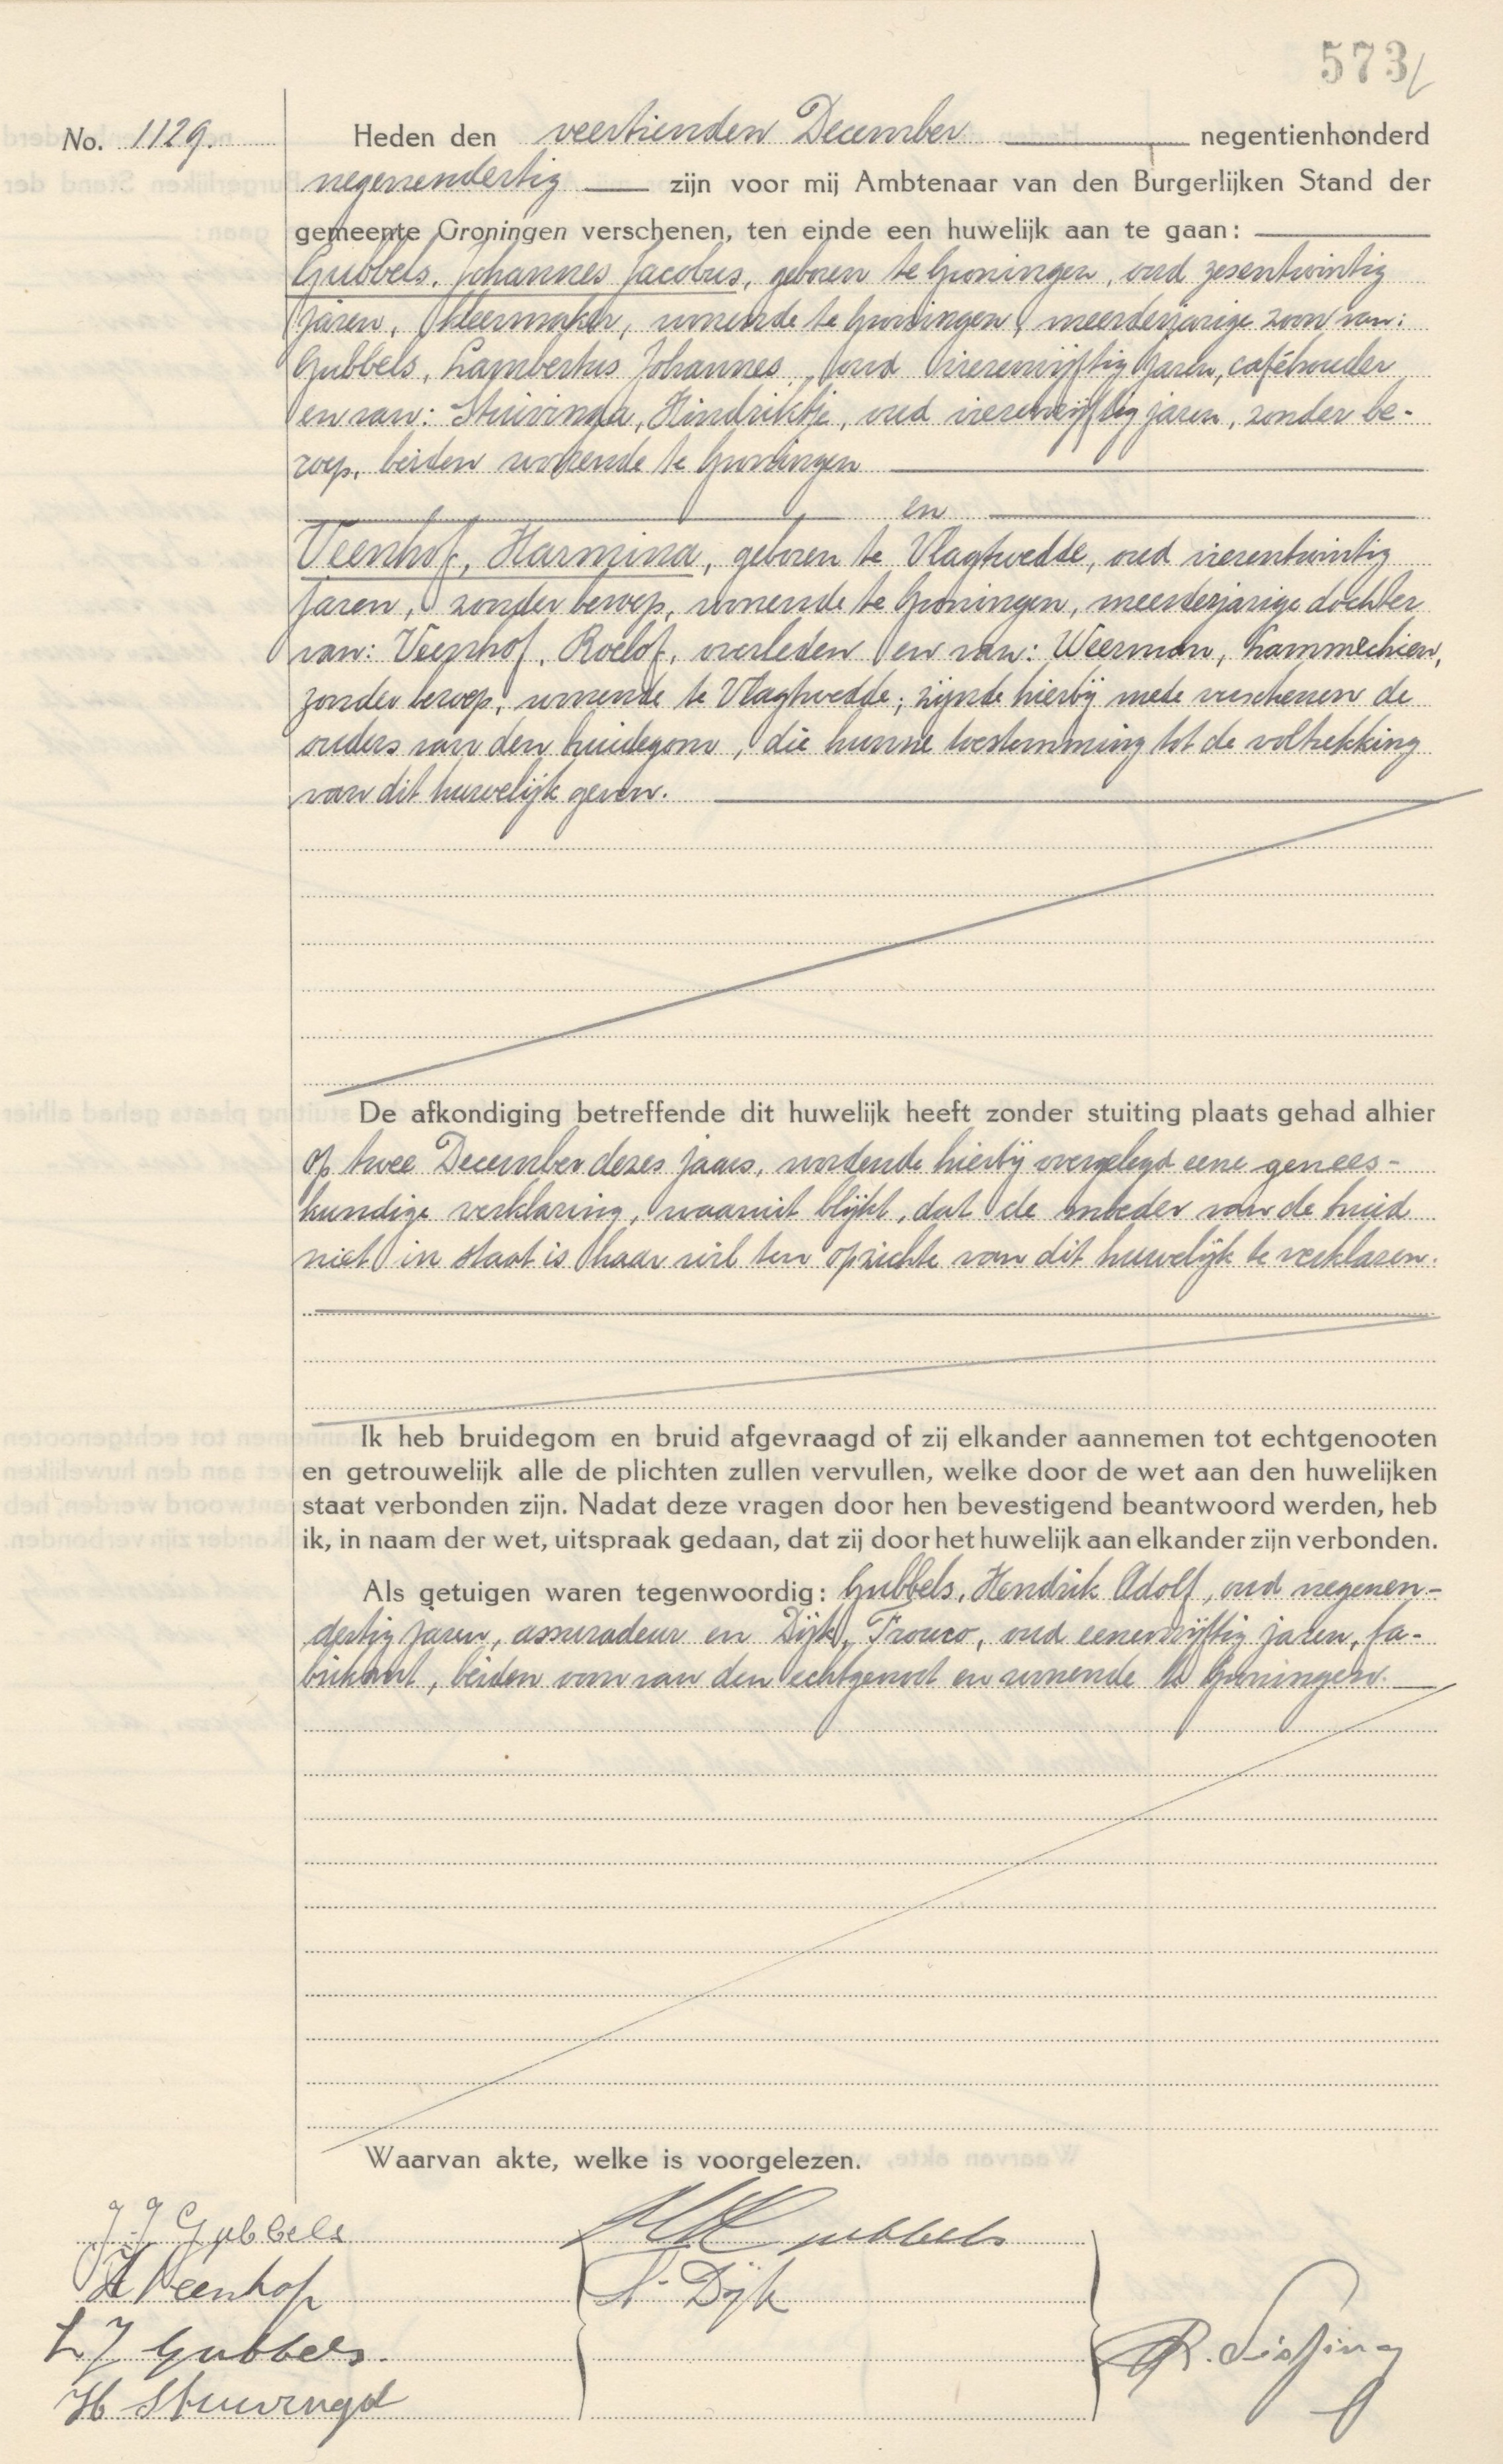 573
No. 1129.
Heden den veertienden December negentienhonderd
negenendertig zijn voor mij Ambtenaar van den Burgerlijken Stand der
gemeente Groningen verschenen, ten einde een huwelijk aan te gaan:
Gubbels, Johannes Jacobus, geboren te Groningen, oud zesentwintig
jaren, kleermaker, wonende te Groningen, meerderjarige zoon van:
Gubbels, Lambertus Johannes, oud vierenvijftig jaren, caféhouder
en van: Stuivinga, Hindriktje, oud vierenvijftig jaren, zonder be-
roep, beiden wonende te Groningen
en
Veenhof, Harmina, geboren te Vlagtwedde, oud vierentwintig
jaren, zonder beroep, wonende te Groningen, meerderjarige dochter
van: Veenhof, Roelof, overleden en van: Weerman, Lammechien,
zonder beroep, wonende te Vlagtwedde; zijnde hierbij mede verschenen de
ouders van den bruidegom, die hunne toestemming tot de voltrekking
van dit huwelijk geven.
De afkondiging betreffende dit huwelijk heeft zonder stuiting plaats gehad alhier
op twee December dezes jaars, wordende hierbij overgelegd eene genees-
kundige verklaring, waaruit blijkt, dat de moeder van de bruid
niet in staat is haar wil ten opzichte van dit huwelijk te verklaren.
Ik heb bruidegom en bruid afgevraagd of zij elkander aannemen tot echtgenooten
en getrouwelijk alle de plichten zullen vervullen, welke door de wet aan den huwelijken
staat verbonden zijn. Nadat deze vragen door hen bevestigend beantwoord werden, heb
ik, in naam der wet, uitspraak gedaan, dat zij door het huwelijk aan elkander zijn verbonden.
Als getuigen waren tegenwoordig: Gubbels, Hendrik Adolf, oud negenen-
dertig jaren, assuradeur en Dijk, Trouco, oud eenenvijftig jaren, fa-
brikant, beiden oom van den echtgenoot en wonende te Groningen.
Waarvan akte, welke is voorgelezen.
J J Gubbels
H Veenhof
L J Gubbels.
H Stuivinga
Gubbels
Dijk